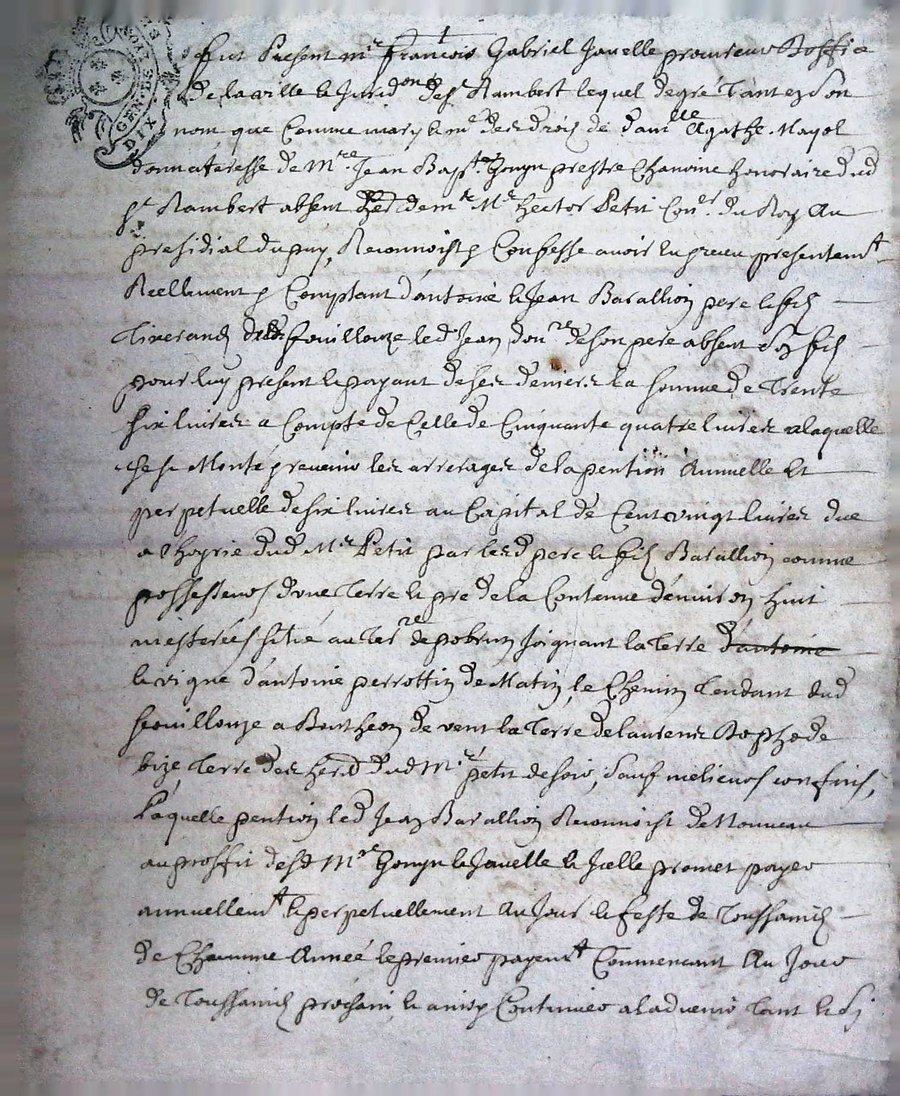 GEN DES
DIX
fut Present mre francois Gabriel Javelle procureur d'offic
de la ville & Jurid.on de st Rambert lequel de gré tant en son
nom que Comme mary & me des droits de dam.lle Agathe Mayol
donnateresse de M.re Jean Bap.te Gonyn prestre Chanoine honoraire dud
st Rambert absent her de M.re hector Petit Con.er du Roy Au
presidial du puy, Reconnoist & Confesse avoir eu & receu presentem.t
Reellement & Comptant d'antoine & Jean Barallion pere & fils
Tixerands de fouillouze led Jean don.re de son pere absent
pour luy present & payant de ses deniers la somme de Trente
six livres a Compte de Celle de Cinquante quatre livres a laquelle
se st Monté les arrerages de la pention Annuelle et
perpetuelle de six livres au Capital de Cent vingt livres due
a l'hoyrie dud M.re Petit par lesd pere & fils Barallion comme
possesseurs d'une Terre & pre de la Contenue d'environ huit
mesterées situé au Ter.re de Joignant la Terre d'antoine
& vigne d'antoine perrottin de Matin, le Chemin Tendant dud
fouillouze a Bontheon de vent la Terre de laurens de
bize Terre des her.d dud M.re petit de soir, sauf meilleurs confins,
Laquelle pention led Jean Barallion Reconnoist de Nouveau
au proffit desd M.re Gonyn & Javelle & Icelle promet payer
annuellem.t & perpetuellement Au Jour & feste de Toussaints
de Chacunne Année le premier payem.t Commencant Au Jour
de Toussaints prochain, & ainsy Continuer a ladvenir Tant &